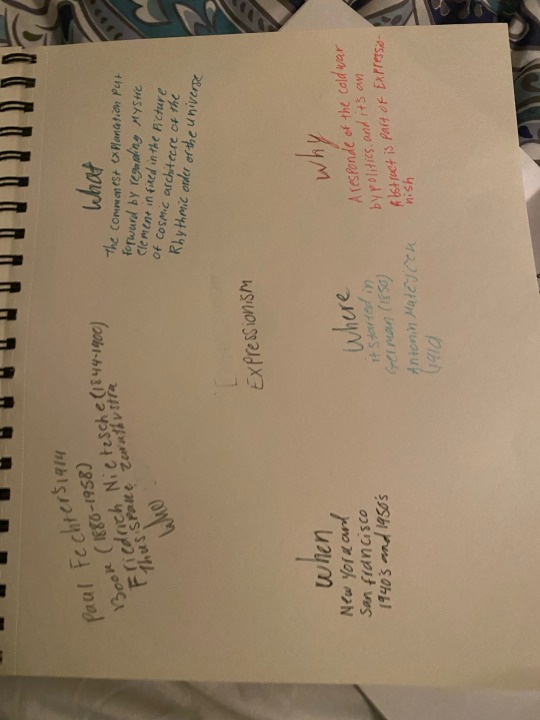 Paul Fechter's 1914
Book (1880-1958)
Friedrich Nietzsche (1844-1900)
Thus spake Zarathustra
Who
What
the commonest explanation put
forward by regarding mystic
element in fixed in the picture
of cosmic architecre of the
Rhythmic order of the universe
Expressionism
When
New York and
San francisco
1940's and 1950's
Where
it started in
German (1850)
Antonin
(1910)
Why
A responde of the cold war
by politics and it's an
Abstract is part of Expressio-
nish